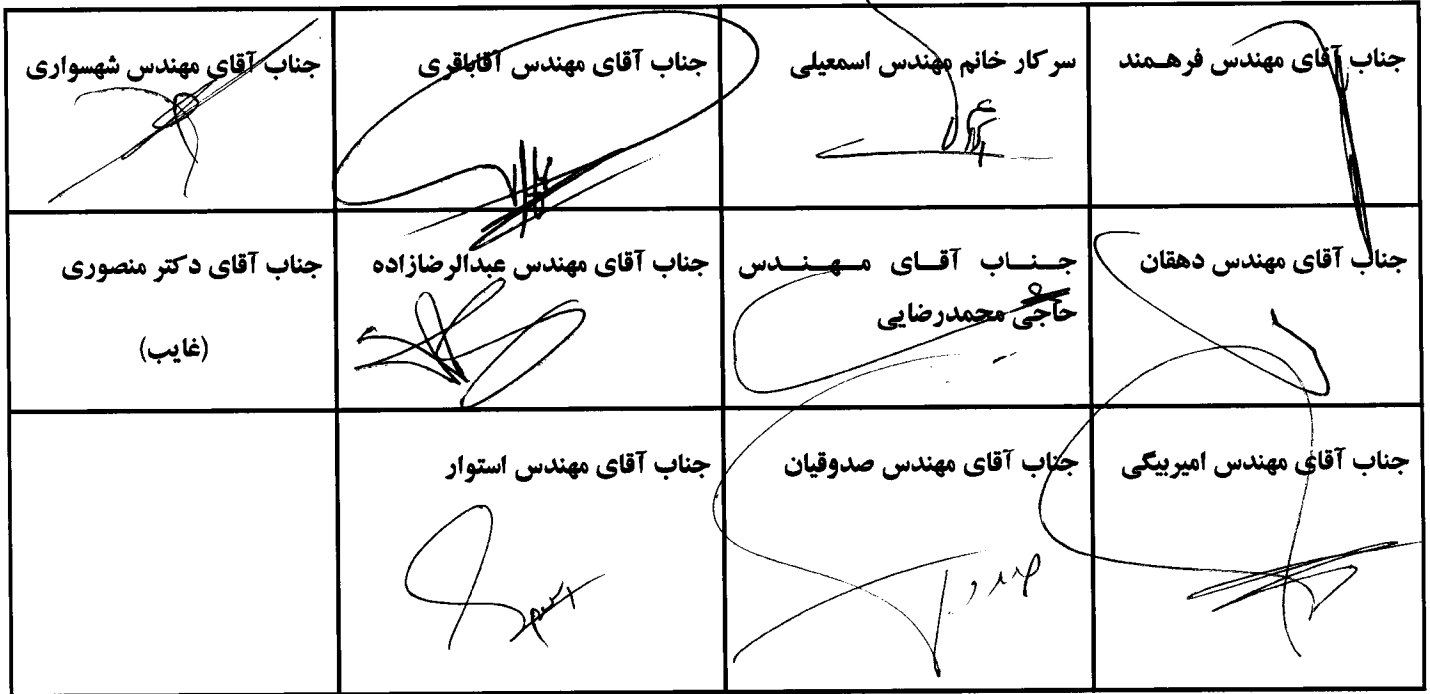 جناب آقای مهندس فرهمند
سرکار خانم مهندس اسمعیلی
جناب آقای مهندس آقاباقری
جناب آقای مهندس شهسواری
جناب آقای مهندس دهقان
جناب آقای مهندس
حاجی محمدرضایی
جناب آقای مهندس عبدالرضازاده
جناب آقای دکتر منصوری
(غایب)
جناب آقای مهندس امیربیگی
جناب آقای مهندس صدوقیان
جناب آقای مهندس استوار